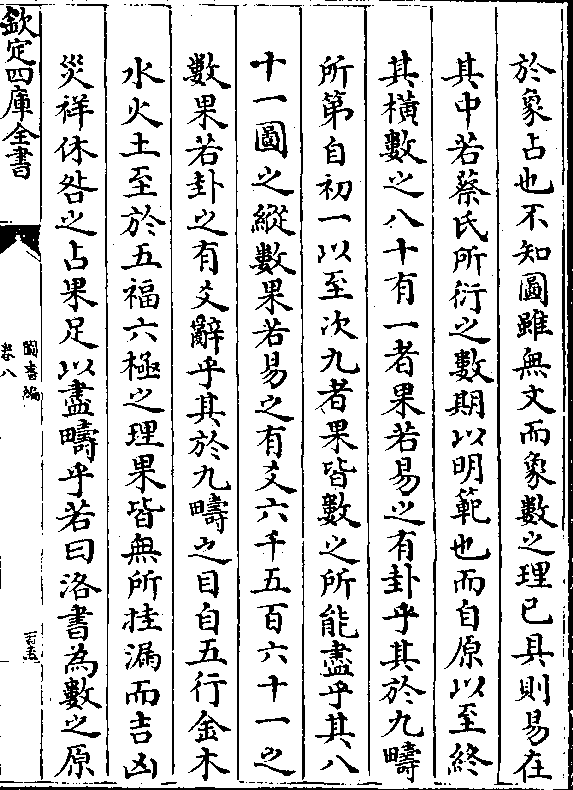 於象占也不知圖雖無文而象數之理已具則易在
其中若蔡氏所衍之數期以明範也而自原以至終
其橫數之八十有一者果若易之有卦乎其於九疇
所第自初一以至次九者果皆數之所能盡乎其八
十一圖之縱數果若易之有爻六千五百六十一之
數果若卦之有爻辭乎其於九疇之目自五行金木
水火土至於五福六極之理果皆無所挂漏而吉凶
災祥休咎之占果足以盡疇乎若曰洛書為數之原
欽定四庫全書
圖書編
卷八